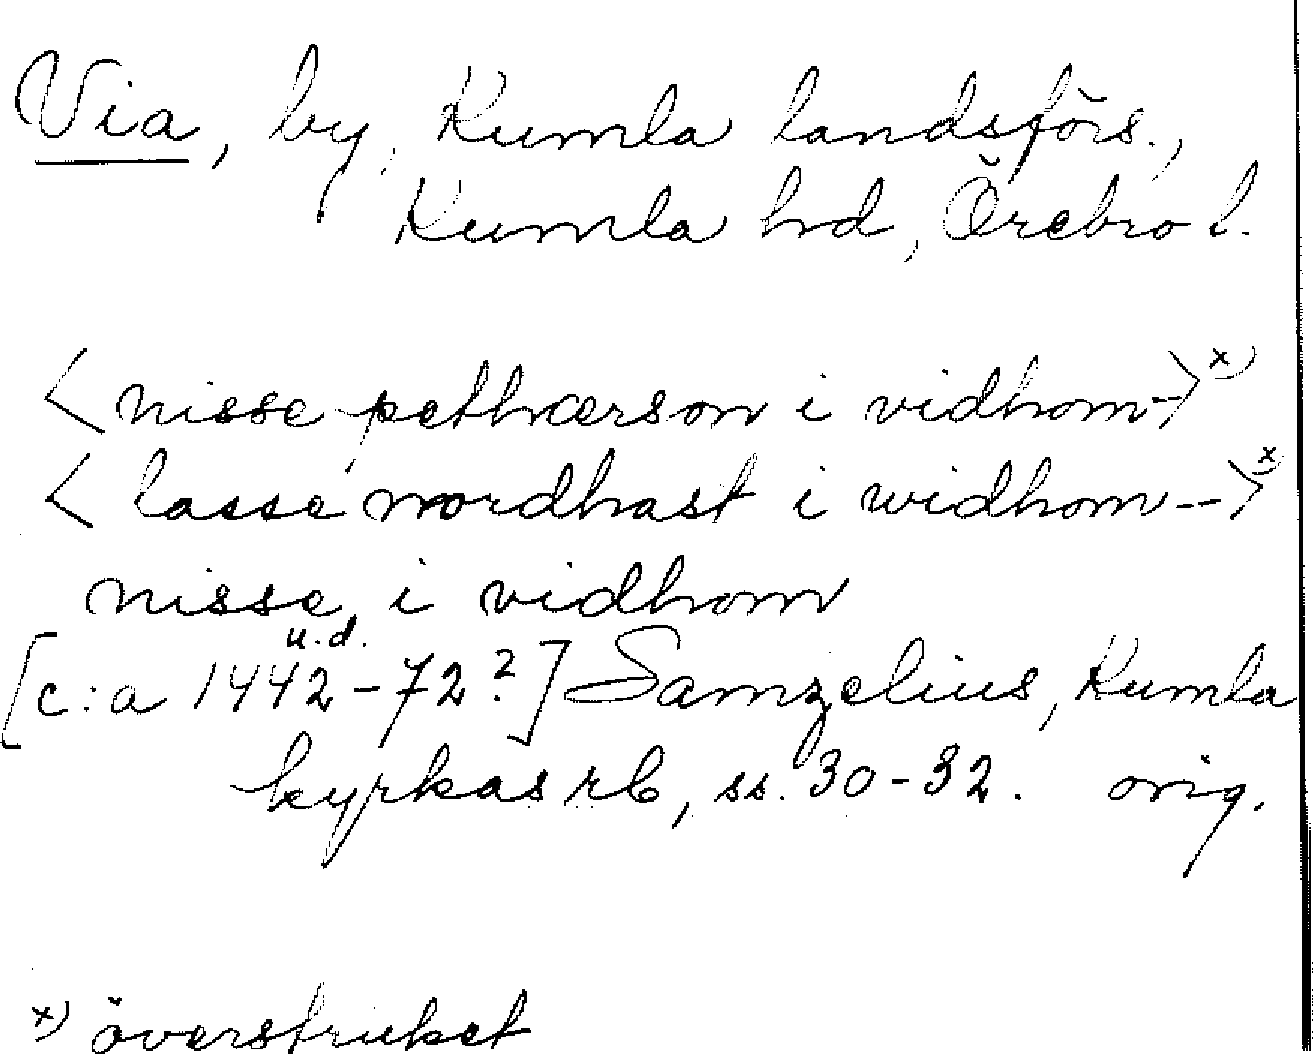 Via, by, Kumla landsförs.,
Kumla hd, Örebro l.
< nisse pethærson i vidhom -> x)
< lasse nordhast i widhom --> x)
nisse i vidhom
u.d.
[c:a 1442-72?] Samzelius, Kumla
kyrkas rb, ss. 30-32. orig.
x) överstruket